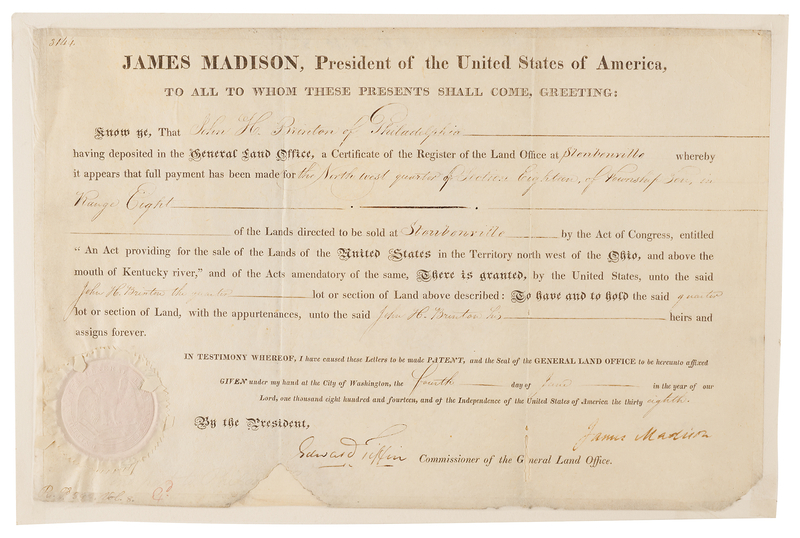 3141.
JAMES MADISON, President of the United States of America,
TO ALL TO WHOM THESE PRESENTS SHALL COME, GREETING:
Know ye, That John H. Brinton of Philadelphia
having deposited in the General Land Office, a Certificate of the Register of the Land Office at Steubenville whereby
it appears that full payment has been made for the North west quarter of Section Eighteen, of Township Ten, in
Range Eight
of the Lands directed to be sold at Steubenville by the Act of Congress, entitled
"An Act providing for the sale of the Lands of the United States in the Territory north west of the Ohio, and above the
mouth of Kentucky river," and of the Acts amendatory of the same, There is granted, by the United States, unto the said
John H. Brinton the quarter lot or section of Land above described: To have and to hold the said quarter
lot or section of Land, with the appurtenances, unto the said John H. Brinton his heirs and
assigns forever.
IN TESTIMONY WHEREOF, I have caused these Letters to be made PATENT, and the Seal of the GENERAL LAND OFFICE to be hereunto affixed
GIVEN under my hand at the City of Washington, the fourth day of June in the year of our
Lord, one thousand eight hundred and fourteen, and of the Independence of the United States of America the thirty eighth.
By the President,
James Madison
Edward Tiffin Commissioner of the General Land Office.